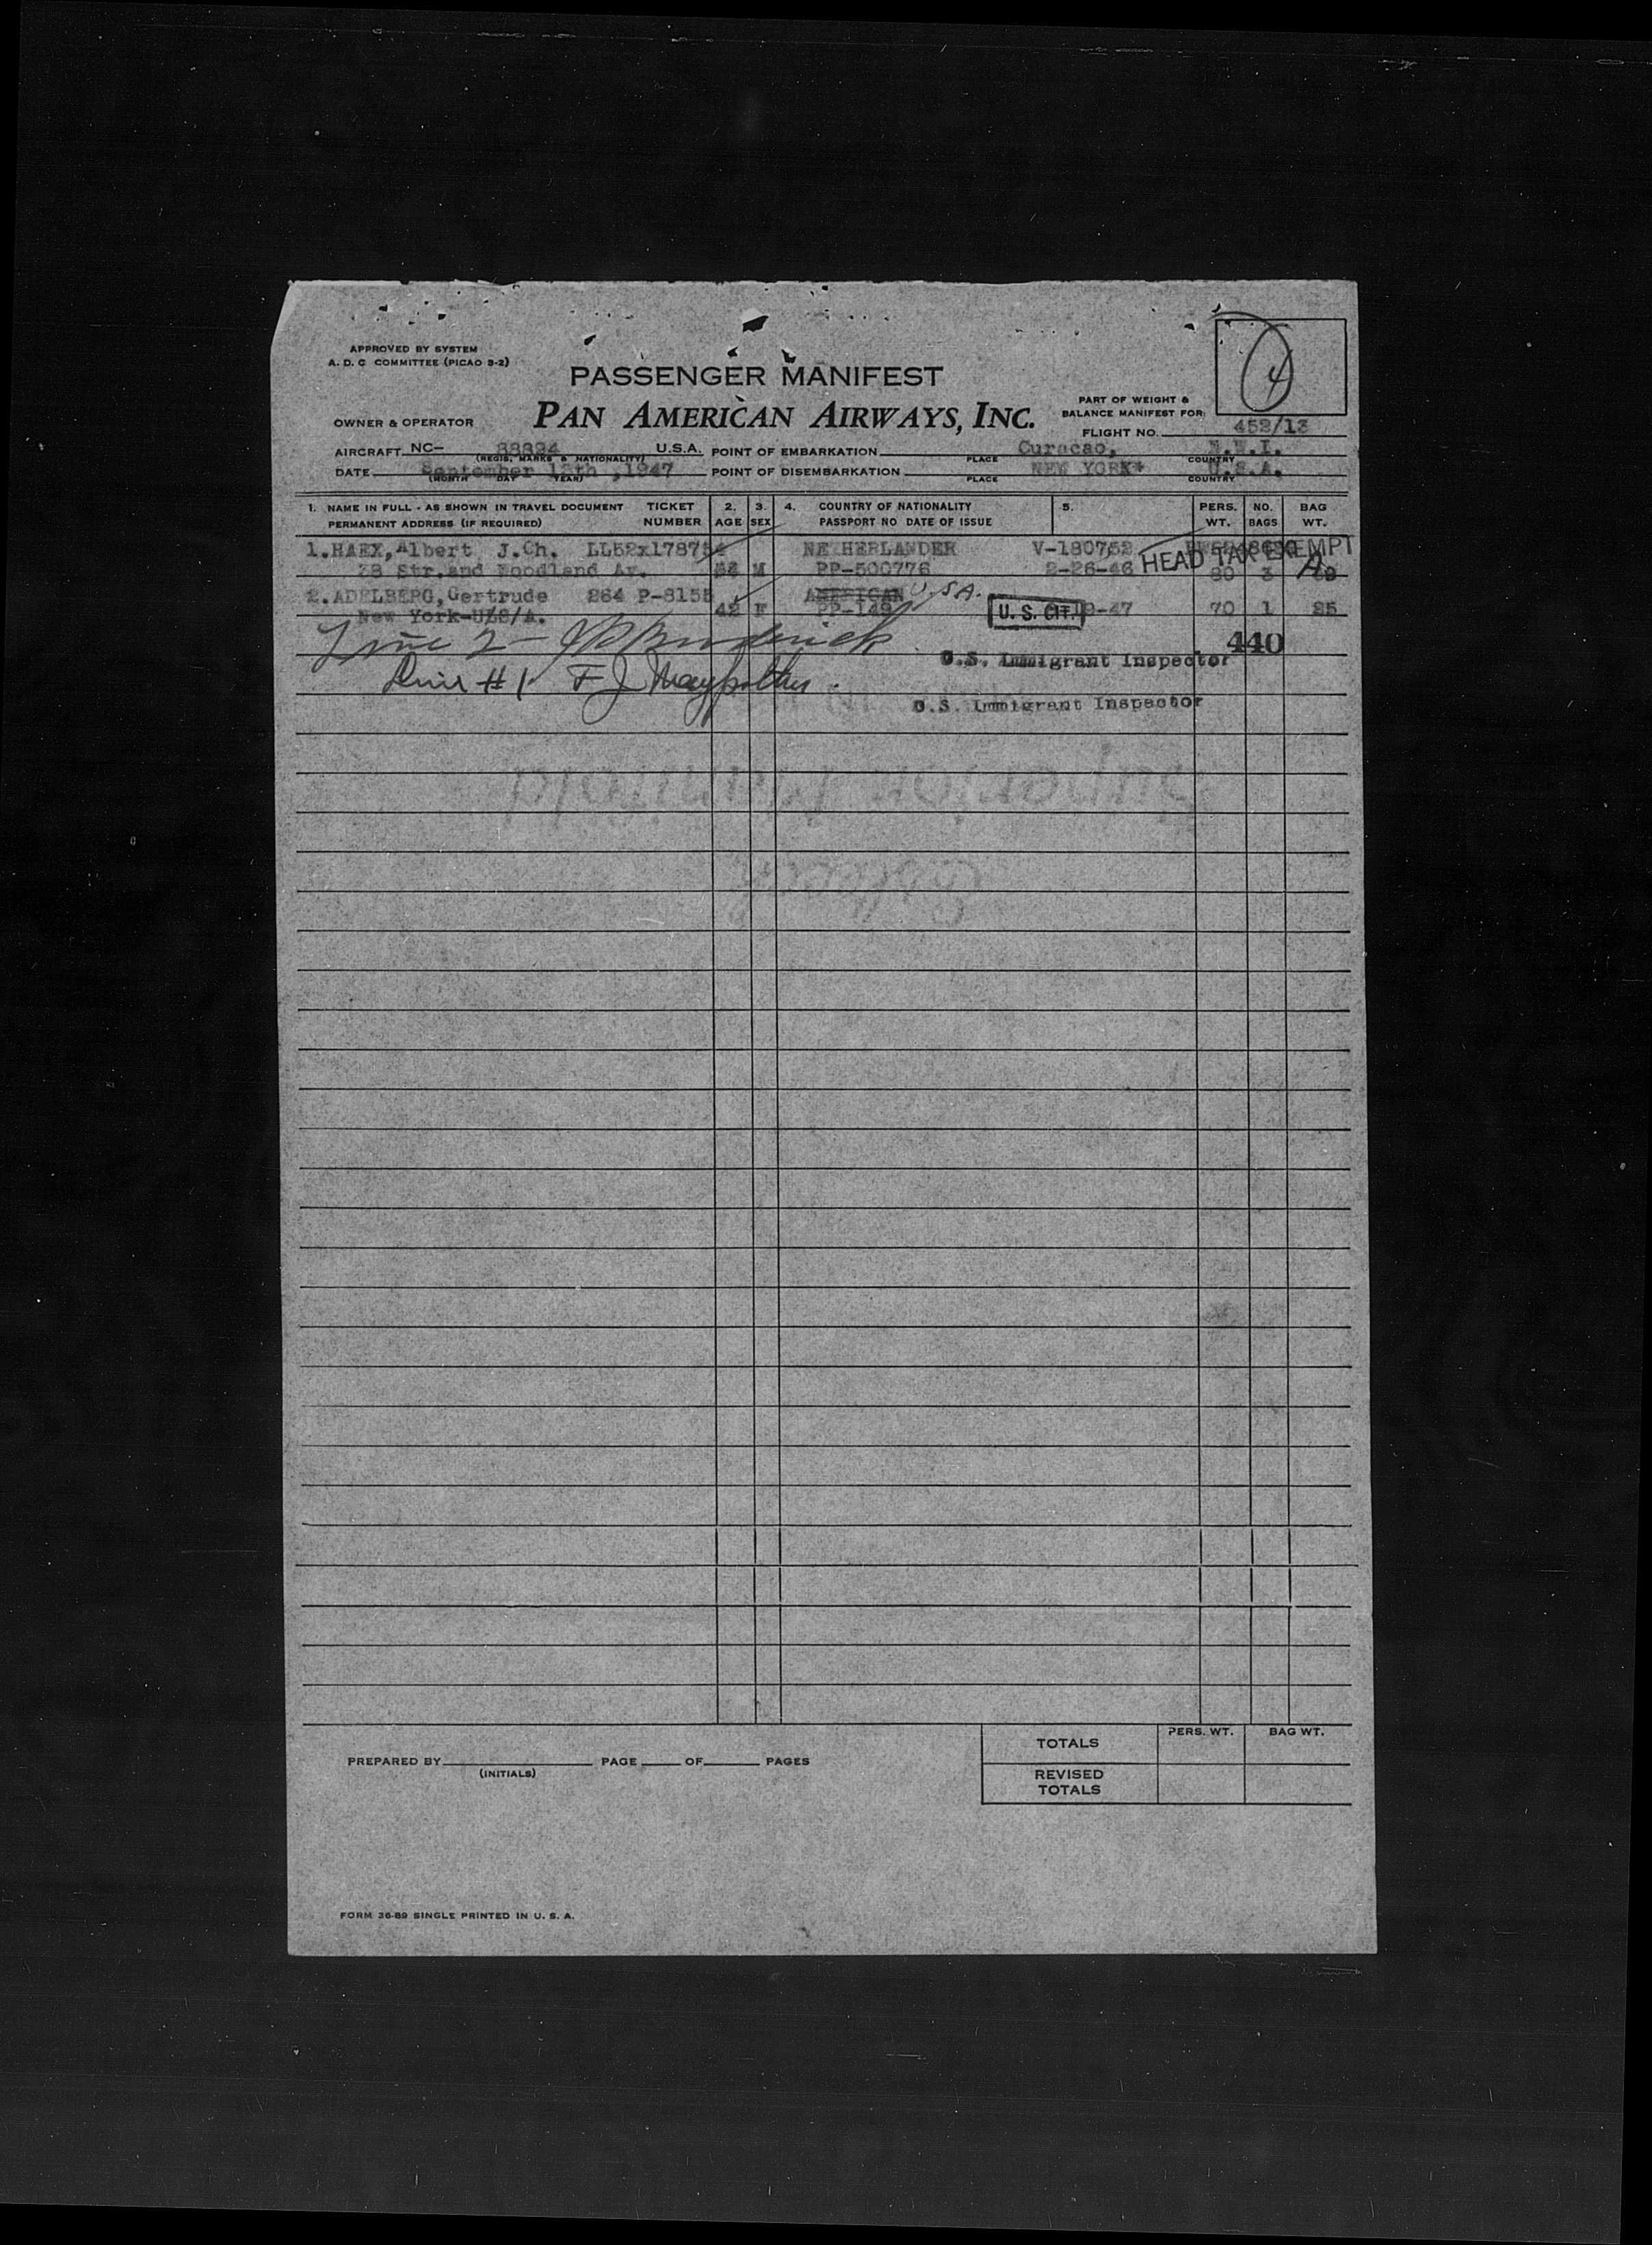 APPROVED BY SYSTEM
A. D. C COMMITTEE (PICAO 3-2)
4
PASSENGER MANIFEST
PAN AMERICAN AIRWAYS, INC.
OWNER & OPERATOR
PART OF WEIGHT &
BALANCE MANIFEST FOR:
FLIGHT NO. 452/13
AIRCRAFT NC- 88894 U.S.A. POINT OF EMBARKATION Curacao, N.W.I.
(REGIS. MARKS & NATIONALITY) PLACE COUNTRY
DATE September 12th ,1947 POINT OF DISEMBARKATION NEW YORK* U.S.A.
(MONTH DAY YEAR) PLACE COUNTRY
1. NAME IN FULL - AS SHOWN IN TRAVEL DOCUMENT TICKET 2. 3. 4. COUNTRY OF NATIONALITY 5. PERS. NO. BAG
PERMANENT ADDRESS (IF REQUIRED) NUMBER AGE SEX PASSPORT NO DATE OF ISSUE WT. BAGS WT.
1.HAEX,Albert J.Ch. LL52x178754 NE HERLANDER V-180752 HEAD TAX EXEMPT
38 Str.and Woodland Av. M PP-500776 2-26-46 80 3
2.ADELBERG,Gertrude 264 P-8155 AMERICAN U.S.A.
New York-U/S/A. 42 F PP-149 U. S. CIT. -47 70 1 25
Line 2 - 440
U.S. Immigrant Inspector
Line #1 F J
U.S. Immigrant Inspector
PREPARED BY PAGE OF PAGES
(INITIALS)
TOTALS PERS. WT. BAG WT.
REVISED
TOTALS
FORM 36-89 SINGLE PRINTED IN U. S. A.